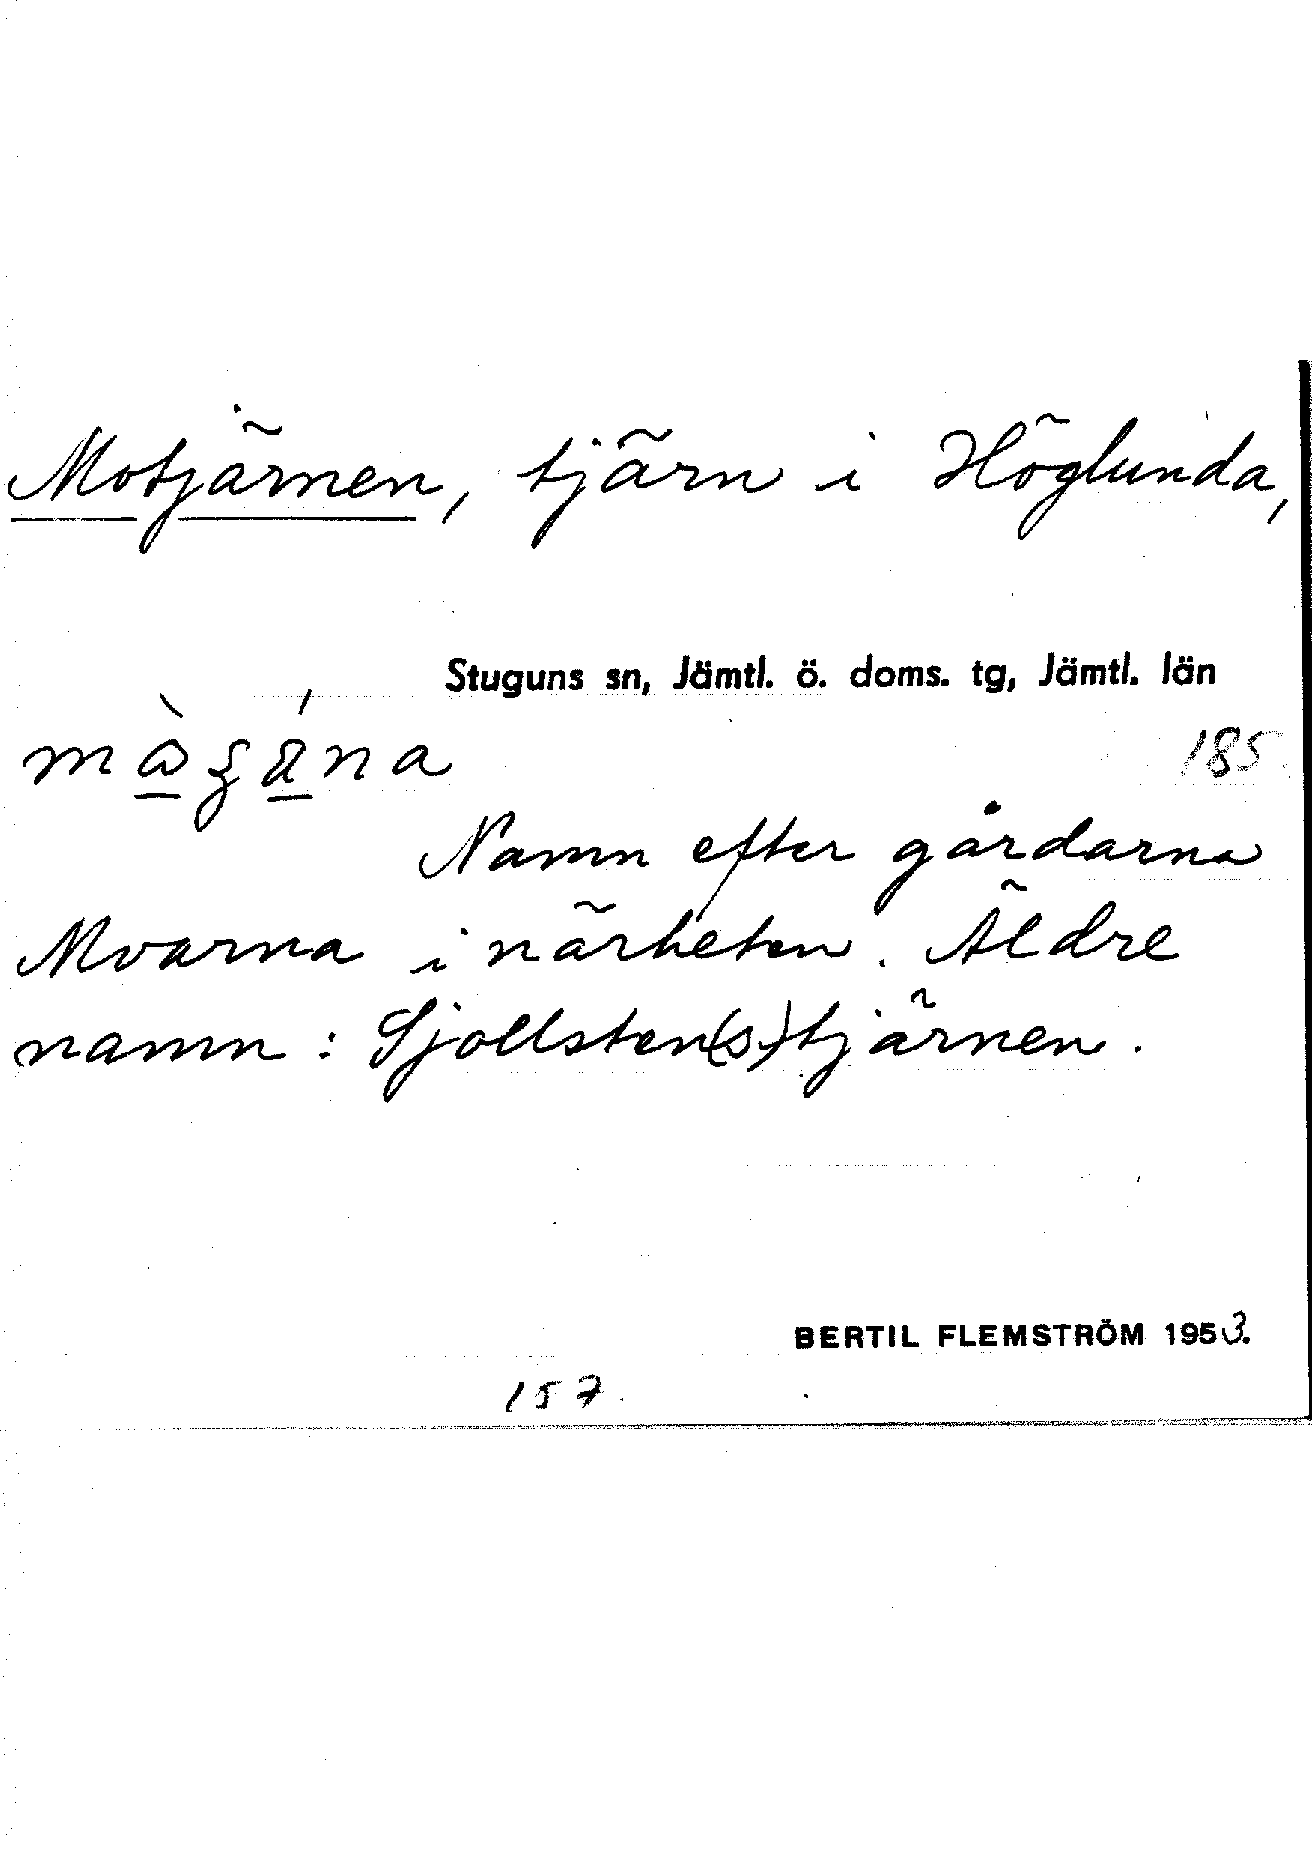 Motjärnen, tjärn i Höglunda,
Stuguns sn, Jämtl. ö. doms. tg, Jämtl. län
185
Namn efter gårdarna
Moarna i närheten. Äldre
namn: Sjollsten(s)tjärnen.
BERTIL FLEMSTRÖM 1953.
157.